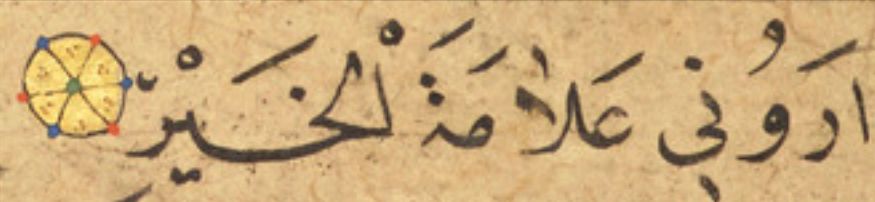 اَرُونِي عَلَامَةَ الْخَيْرِ